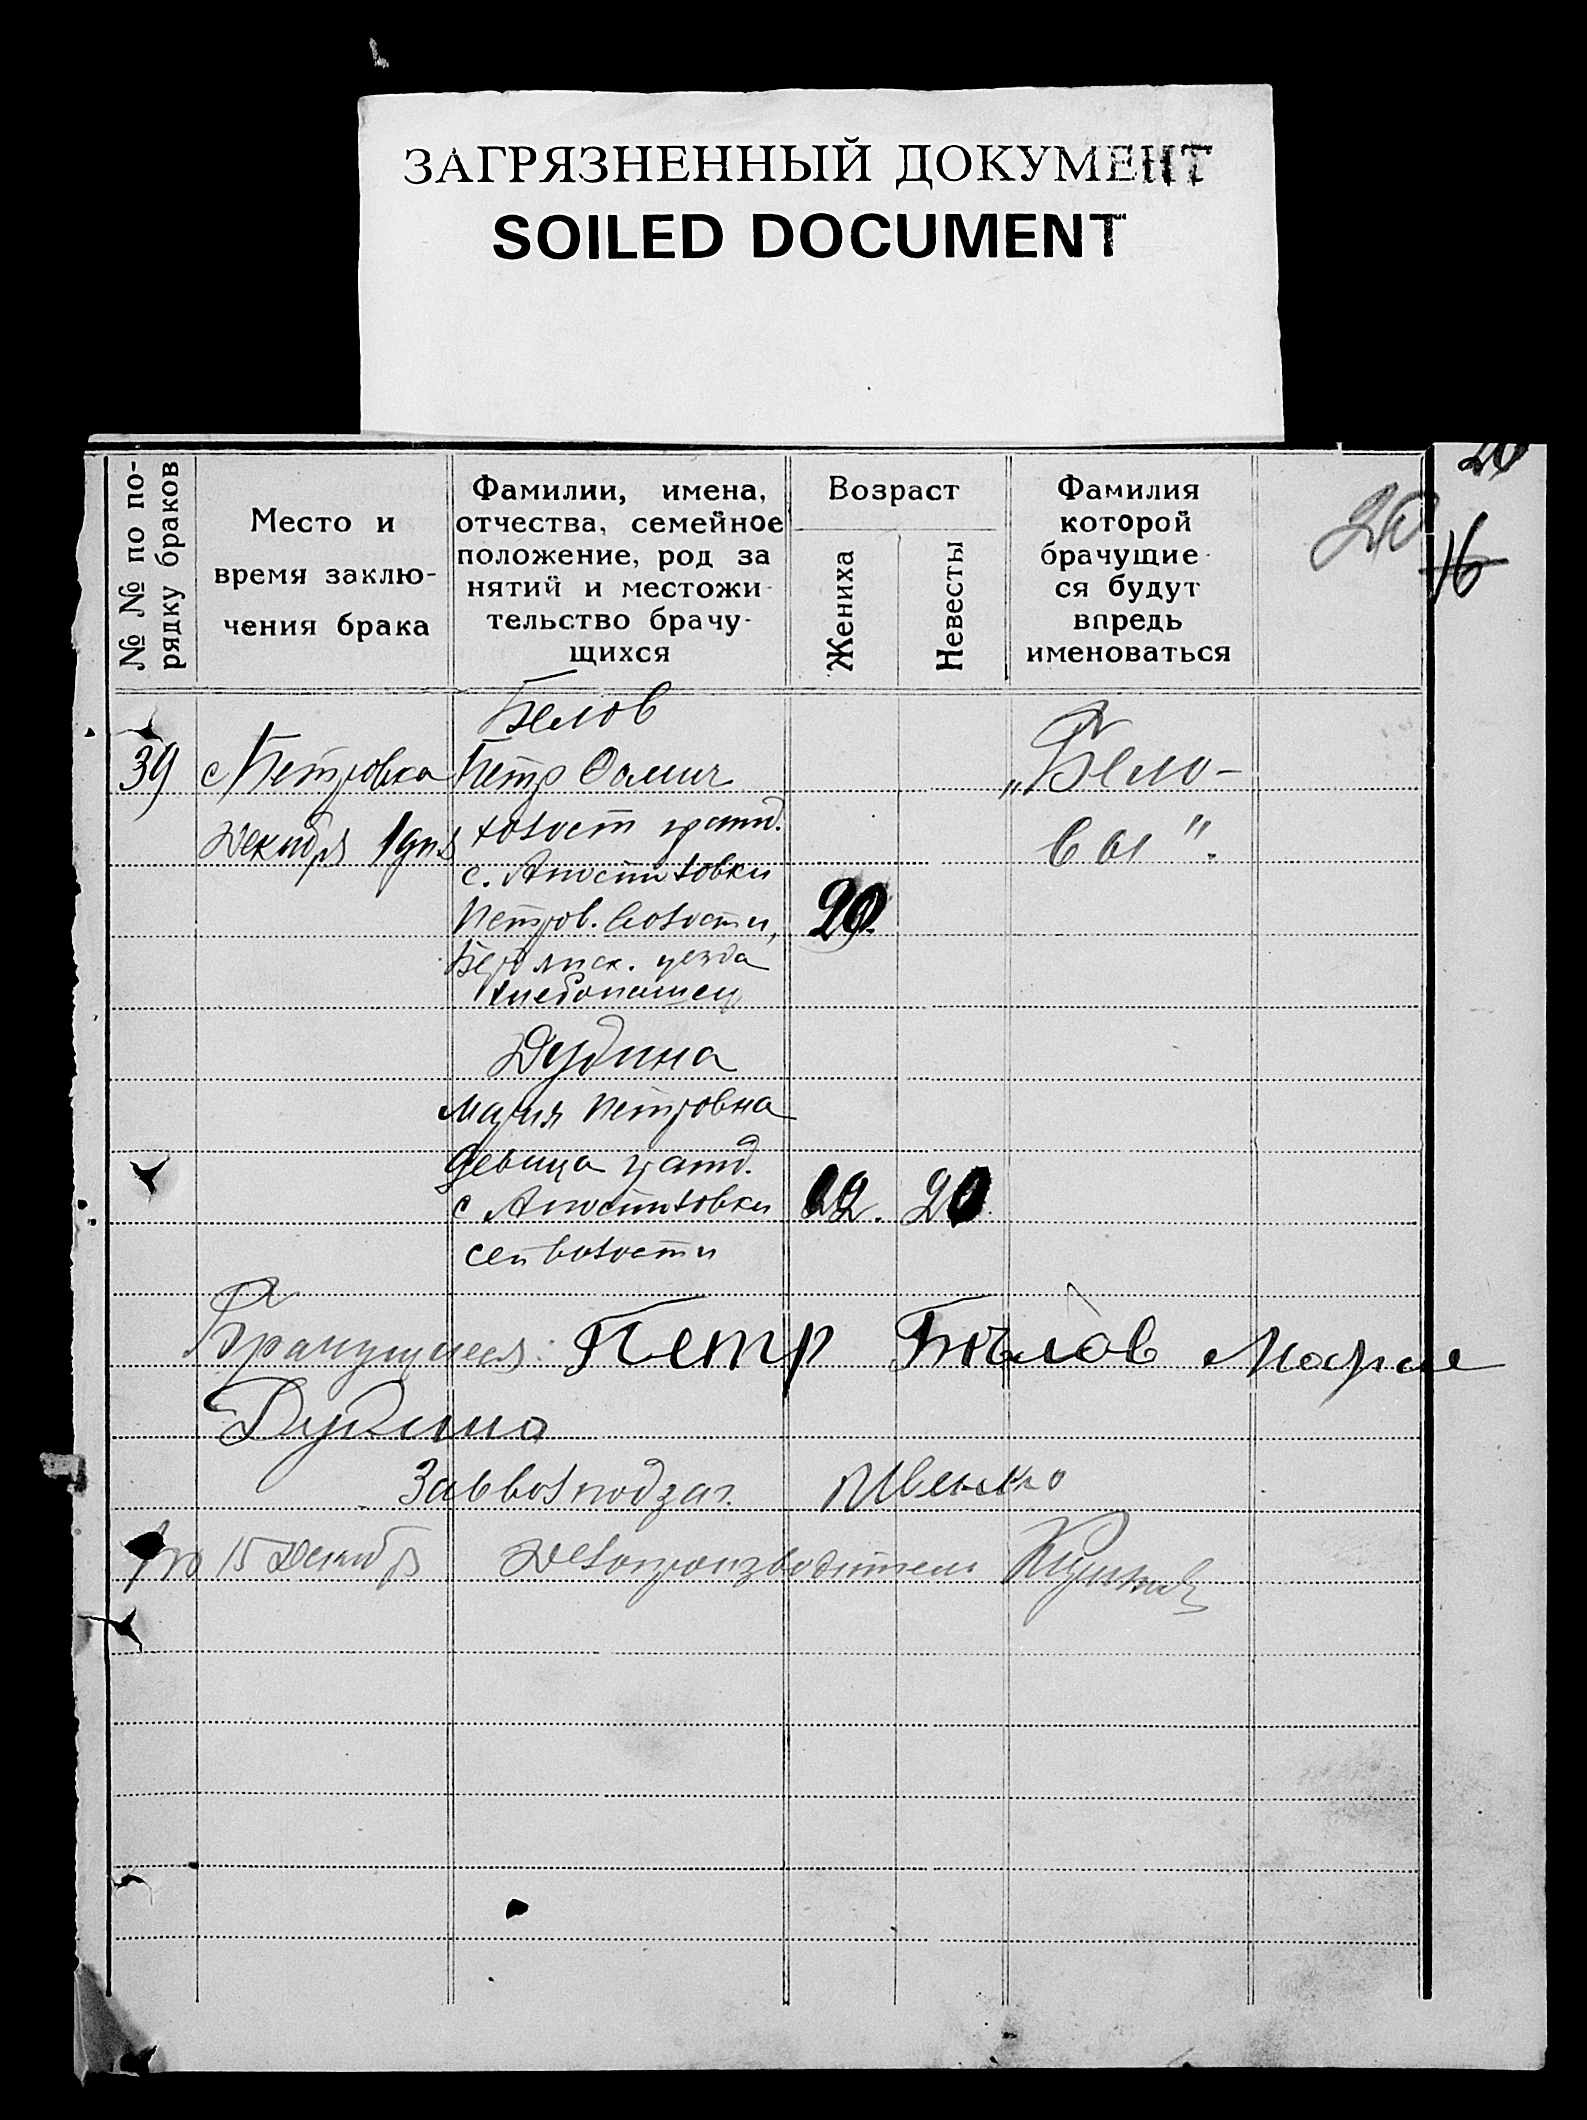 ЗАГРЯЗНЕННЫЙ ДОКУМЕНТ
SOILED DOCUMENT
20
20
16
№ № по по-
рядку браков
Место и
время заклю-
чения брака
Фамилии, имена,
отчества, семейное
положение, род за
нятий и местожи-
тельство брачу-
щихся
Возраст
Жениха
Невесты
Фамилия
которой
брачущие-
ся будут
впредь
именоваться
Белов
39 с Петровка Петр Фомич „Бело-
Декабря 1 дня холост гражд. вы".
с. Апостоловки
Петров. волости, 20
уезда
хлебопашец
Дудина
Мария Петровна
девица гражд.
с Апостоловки 22. 20
сей волости
Брачущиеся: Петр Бѣлов Мария
Дудина
Зав. подзаг.
15 Декабря Делопроизводитель